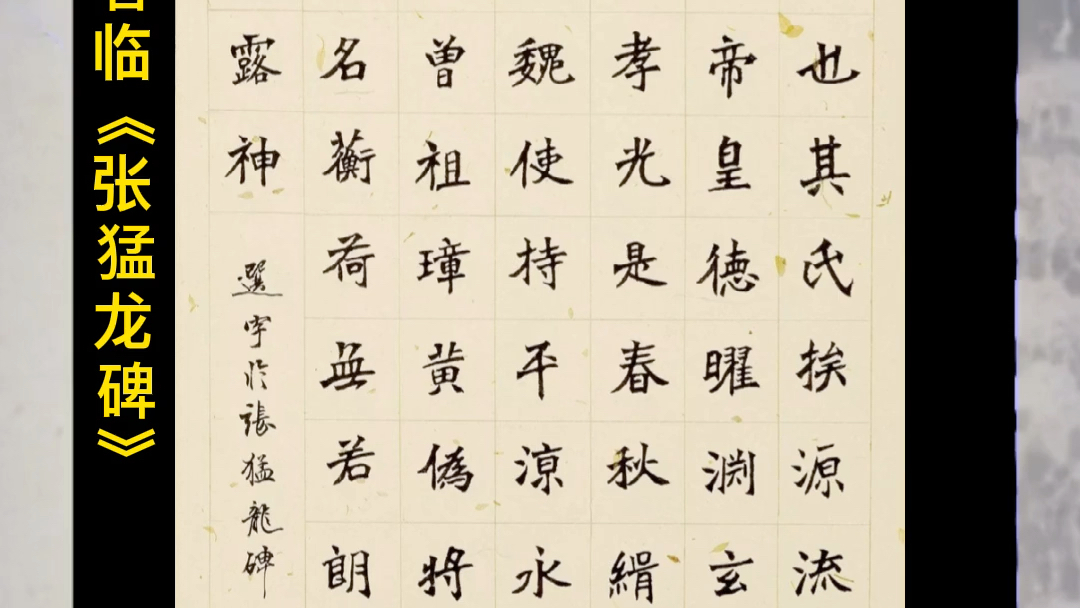 临《张猛龙碑》
也其氏族源流
帝皇德曜渊玄
孝光是春秋緝
魏使持平涼永
曾祖璋黄偽将
名蘅荷無若朗
露神
選字於張猛龍碑